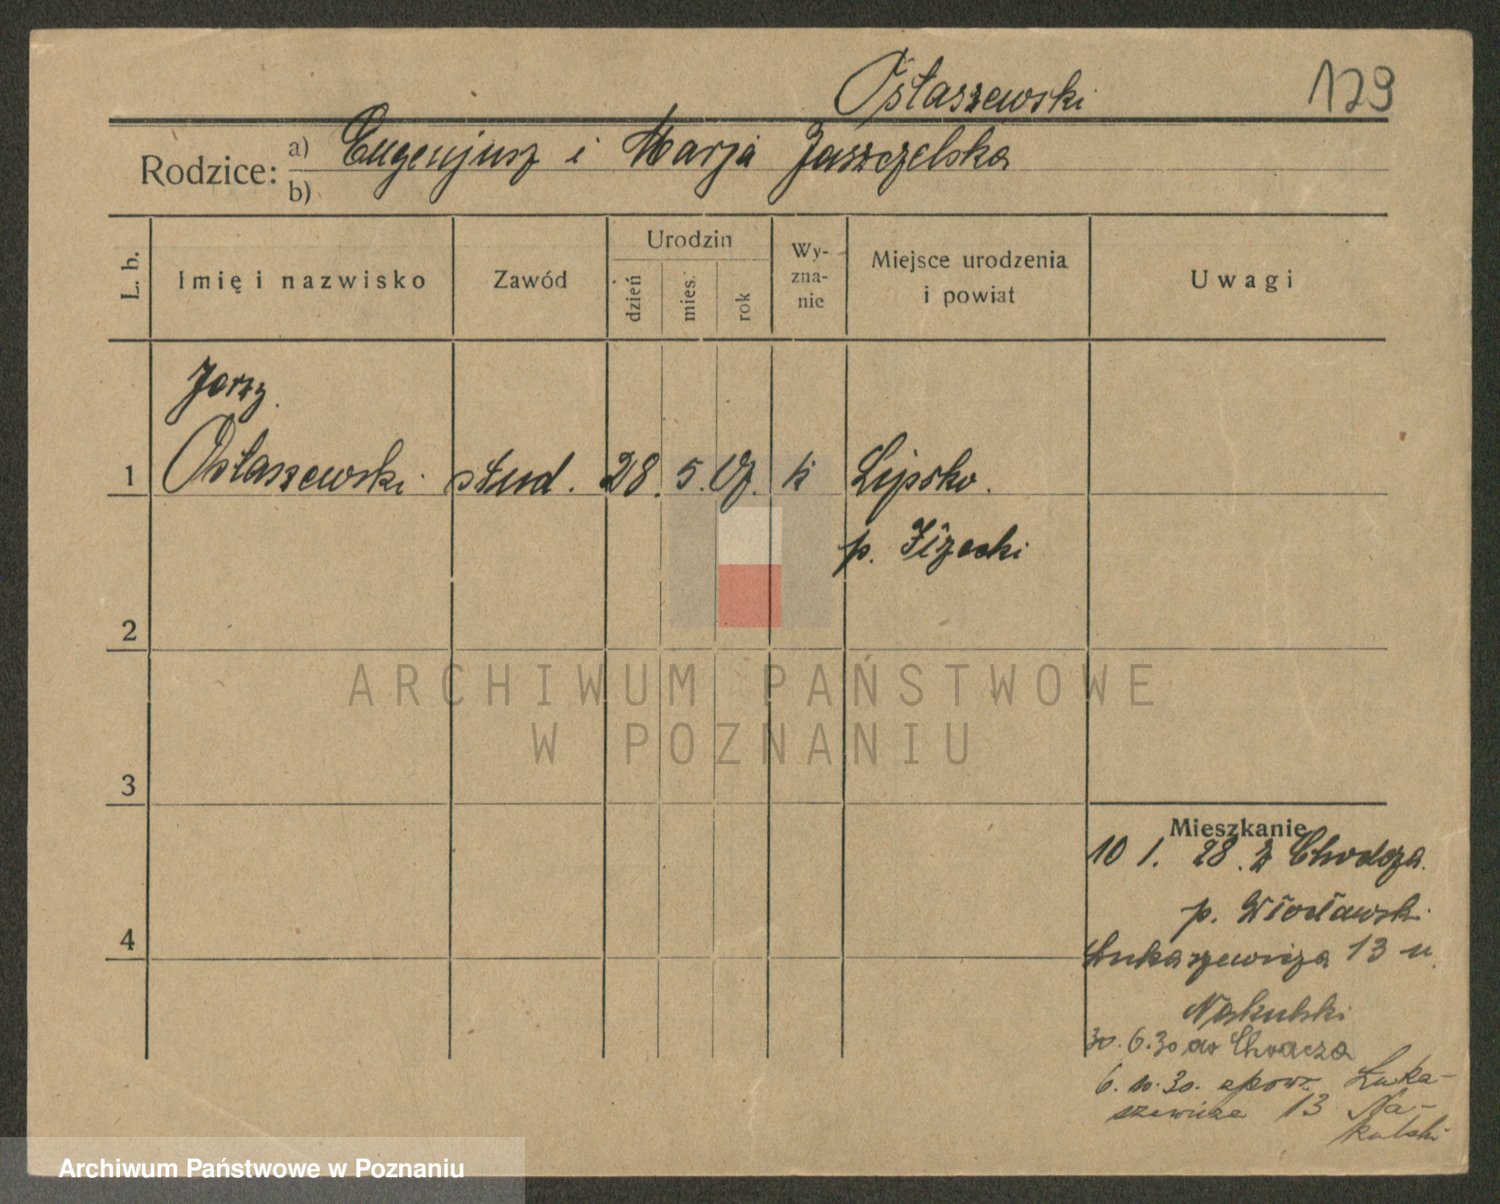 Ostaszewski 129
Rodzice: a) Eugenjusz i Marja Jaszczelska
b)
L. b. Imię i nazwisko Zawód Urodzin dzień mies. rok Wy-zna-nie Miejsce urodzenia i powiat Uwagi
Jerzy
1 Ostaszewski stud. 28. 5. 07. k Lipsko.
p. Iłżecki
2
ARCHIWUM PAŃSTWOWE
W POZNANIU
3
Mieszkanie
10 1. 28. z Chodcza
p. Włocławski
4
Łukaszewicza 13 u.
Nakulski
30. 6. 30 do Chodcza
6. 10. 30. spowr. Łuka-
szewicza 13 Na-
kulski
Archiwum Państwowe w Poznaniu